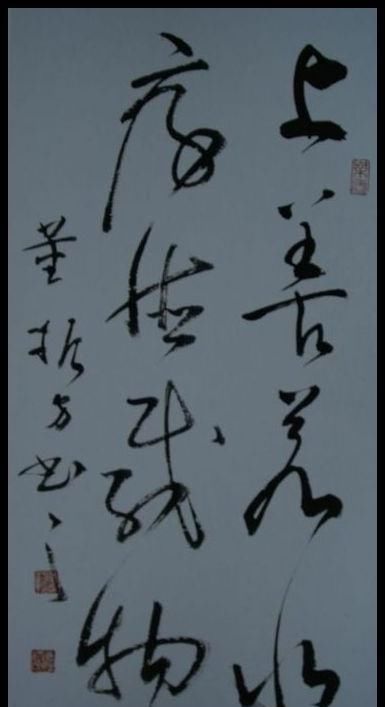 上善若水
厚德载物
董振方书